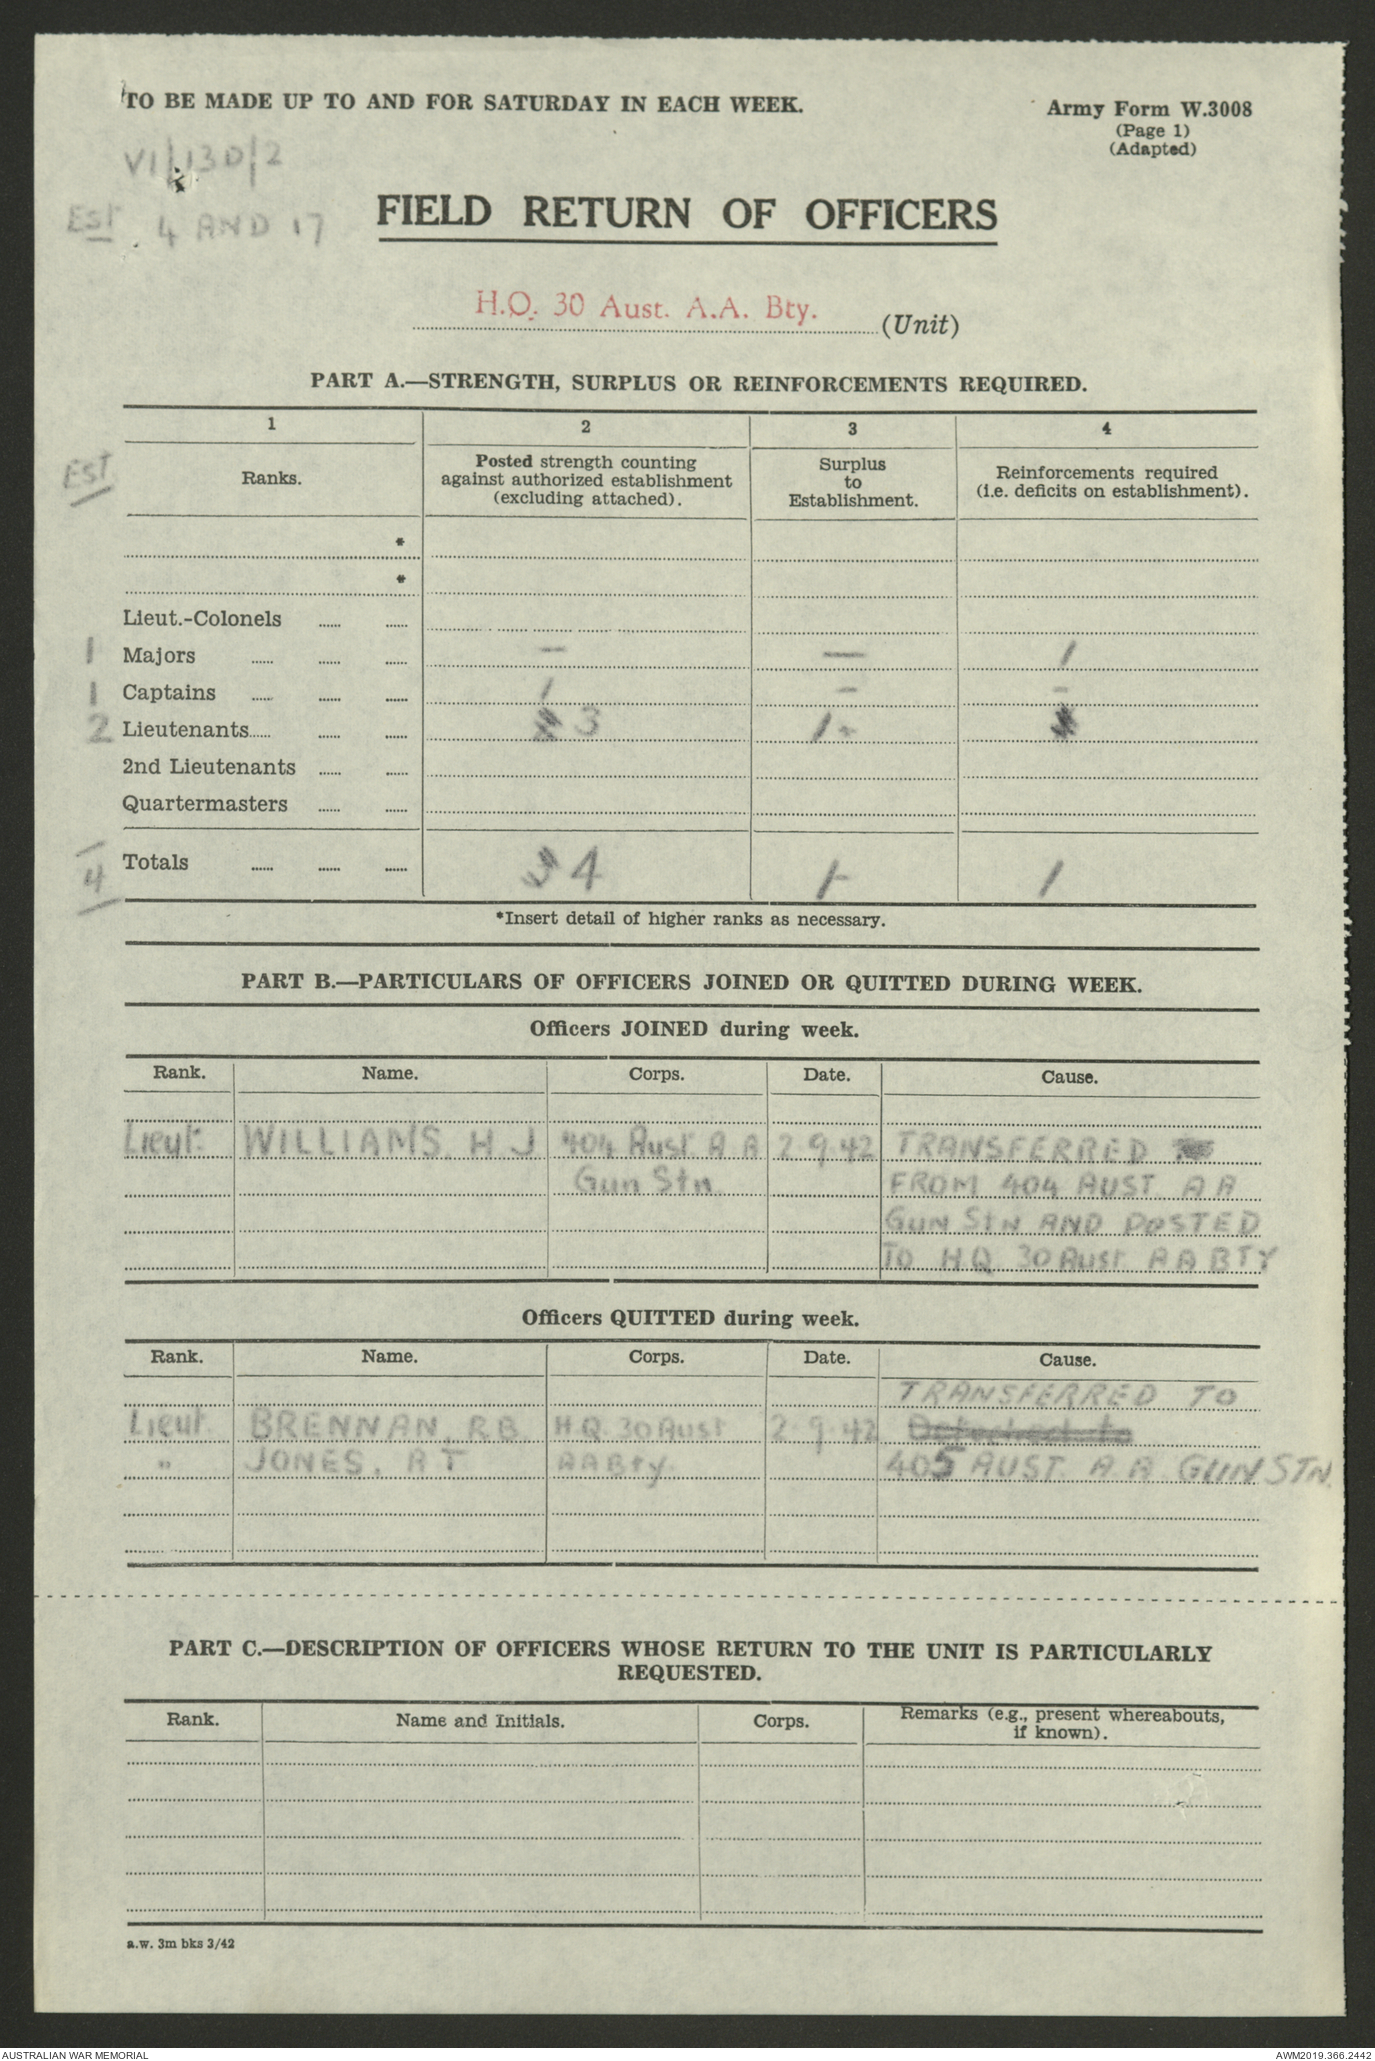 TO BE MADE UP TO AND FOR SATURDAY IN EACH WEEK.
Army Form W.3008
(Page 1)
(Adapted)
VI/13D/2
Est 4 AND 17
FIELD RETURN OF OFFICERS
H.Q. 30 Aust. A.A. Bty. (Unit)
PART A.—STRENGTH, SURPLUS OR REINFORCEMENTS REQUIRED.
1 2 3 4
EST Ranks. Posted strength counting against authorized establishment (excluding attached). Surplus to Establishment. Reinforcements required (i.e. deficits on establishment).
*
*
Lieut.-Colonels
1 Majors — — 1
1 Captains 1 — —
2 Lieutenants 3 1
2nd Lieutenants
Quartermasters
4 Totals 3 4 1 1
*Insert detail of higher ranks as necessary.
PART B.—PARTICULARS OF OFFICERS JOINED OR QUITTED DURING WEEK.
Officers JOINED during week.
Rank. Name. Corps. Date. Cause.
Lieut. WILLIAMS. H J 404 Aust A A 2.9.42 TRANSFERRED
Gun Stn. FROM 404 AUST A A
GUN STN AND POSTED
TO H.Q. 30 Aust A A BTY
Officers QUITTED during week.
Rank. Name. Corps. Date. Cause.
TRANSFERRED TO
Lieut. BRENNAN, R.B. H.Q. 30 Aust 2.9.42 Detached to
" JONES, A T A A Bty. 405 AUST. A A. GUN STN.
PART C.—DESCRIPTION OF OFFICERS WHOSE RETURN TO THE UNIT IS PARTICULARLY
REQUESTED.
Rank. Name and Initials. Corps. Remarks (e.g., present whereabouts, if known).
a.w. 3m bks 3/42
AUSTRALIAN WAR MEMORIAL
AWM2019.366.2442